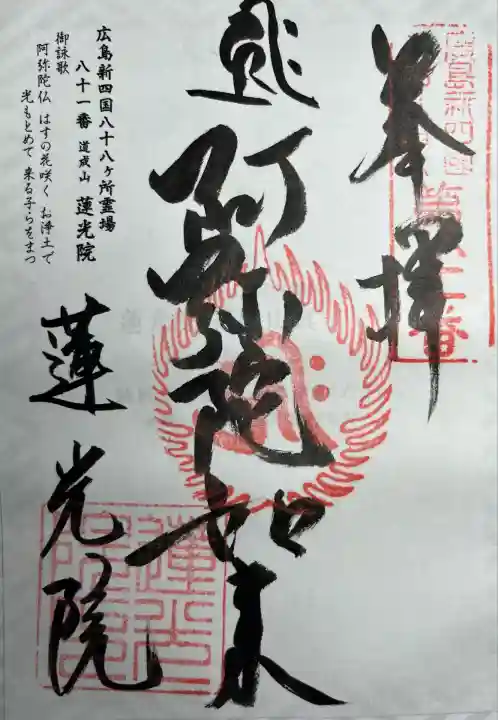 奉拝
広島新四国
第八十一番
阿弥陀如来
広島新四国八十八ヶ所霊場
八十一番 道成山 蓮光院
御詠歌
阿弥陀仏 はすの花咲く お浄土で
光もとめて 来る子らをまつ
蓮光院
蓮光院印